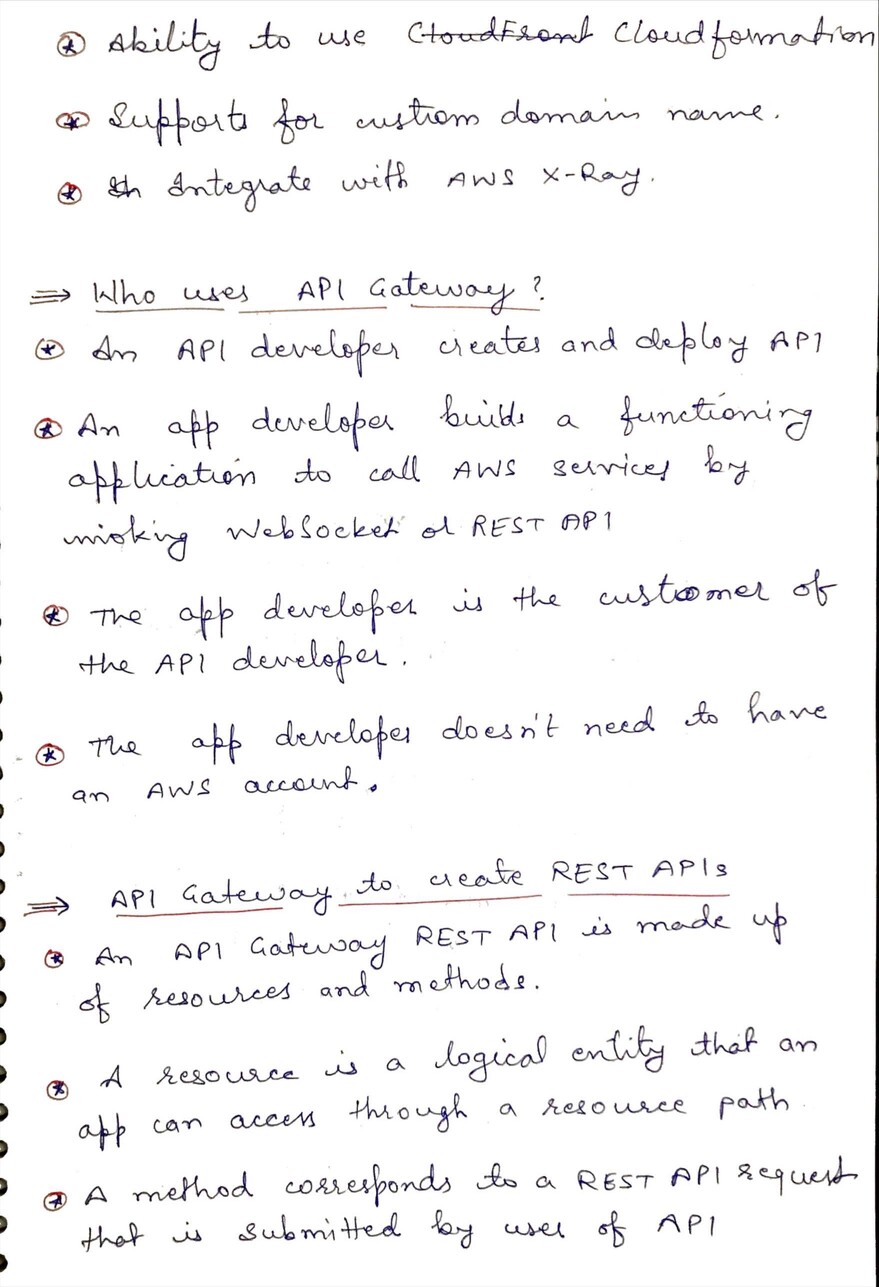 ⊛ Ability to use CloudFront Cloudformation
⊛ Supports for custrom domain name.
⊛ In Integrate with AWS X-Ray.
⇒ Who uses API Gateway?
⊛ An API developer creates and deploy API
⊛ An app developer builds a functioning
application to call AWS services by
making WebSocket or REST API
⊛ The app developer is the customer of
the API developer.
⊛ The app developer doesn't need to have
an AWS account.
⇒ API Gateway to create REST APIs
⊛ An API Gateway REST API is made up
of resources and methods.
⊛ A resource is a logical entity that an
app can access through a resource path.
⊛ A method corresponds to a REST API request
that is submitted by user of API